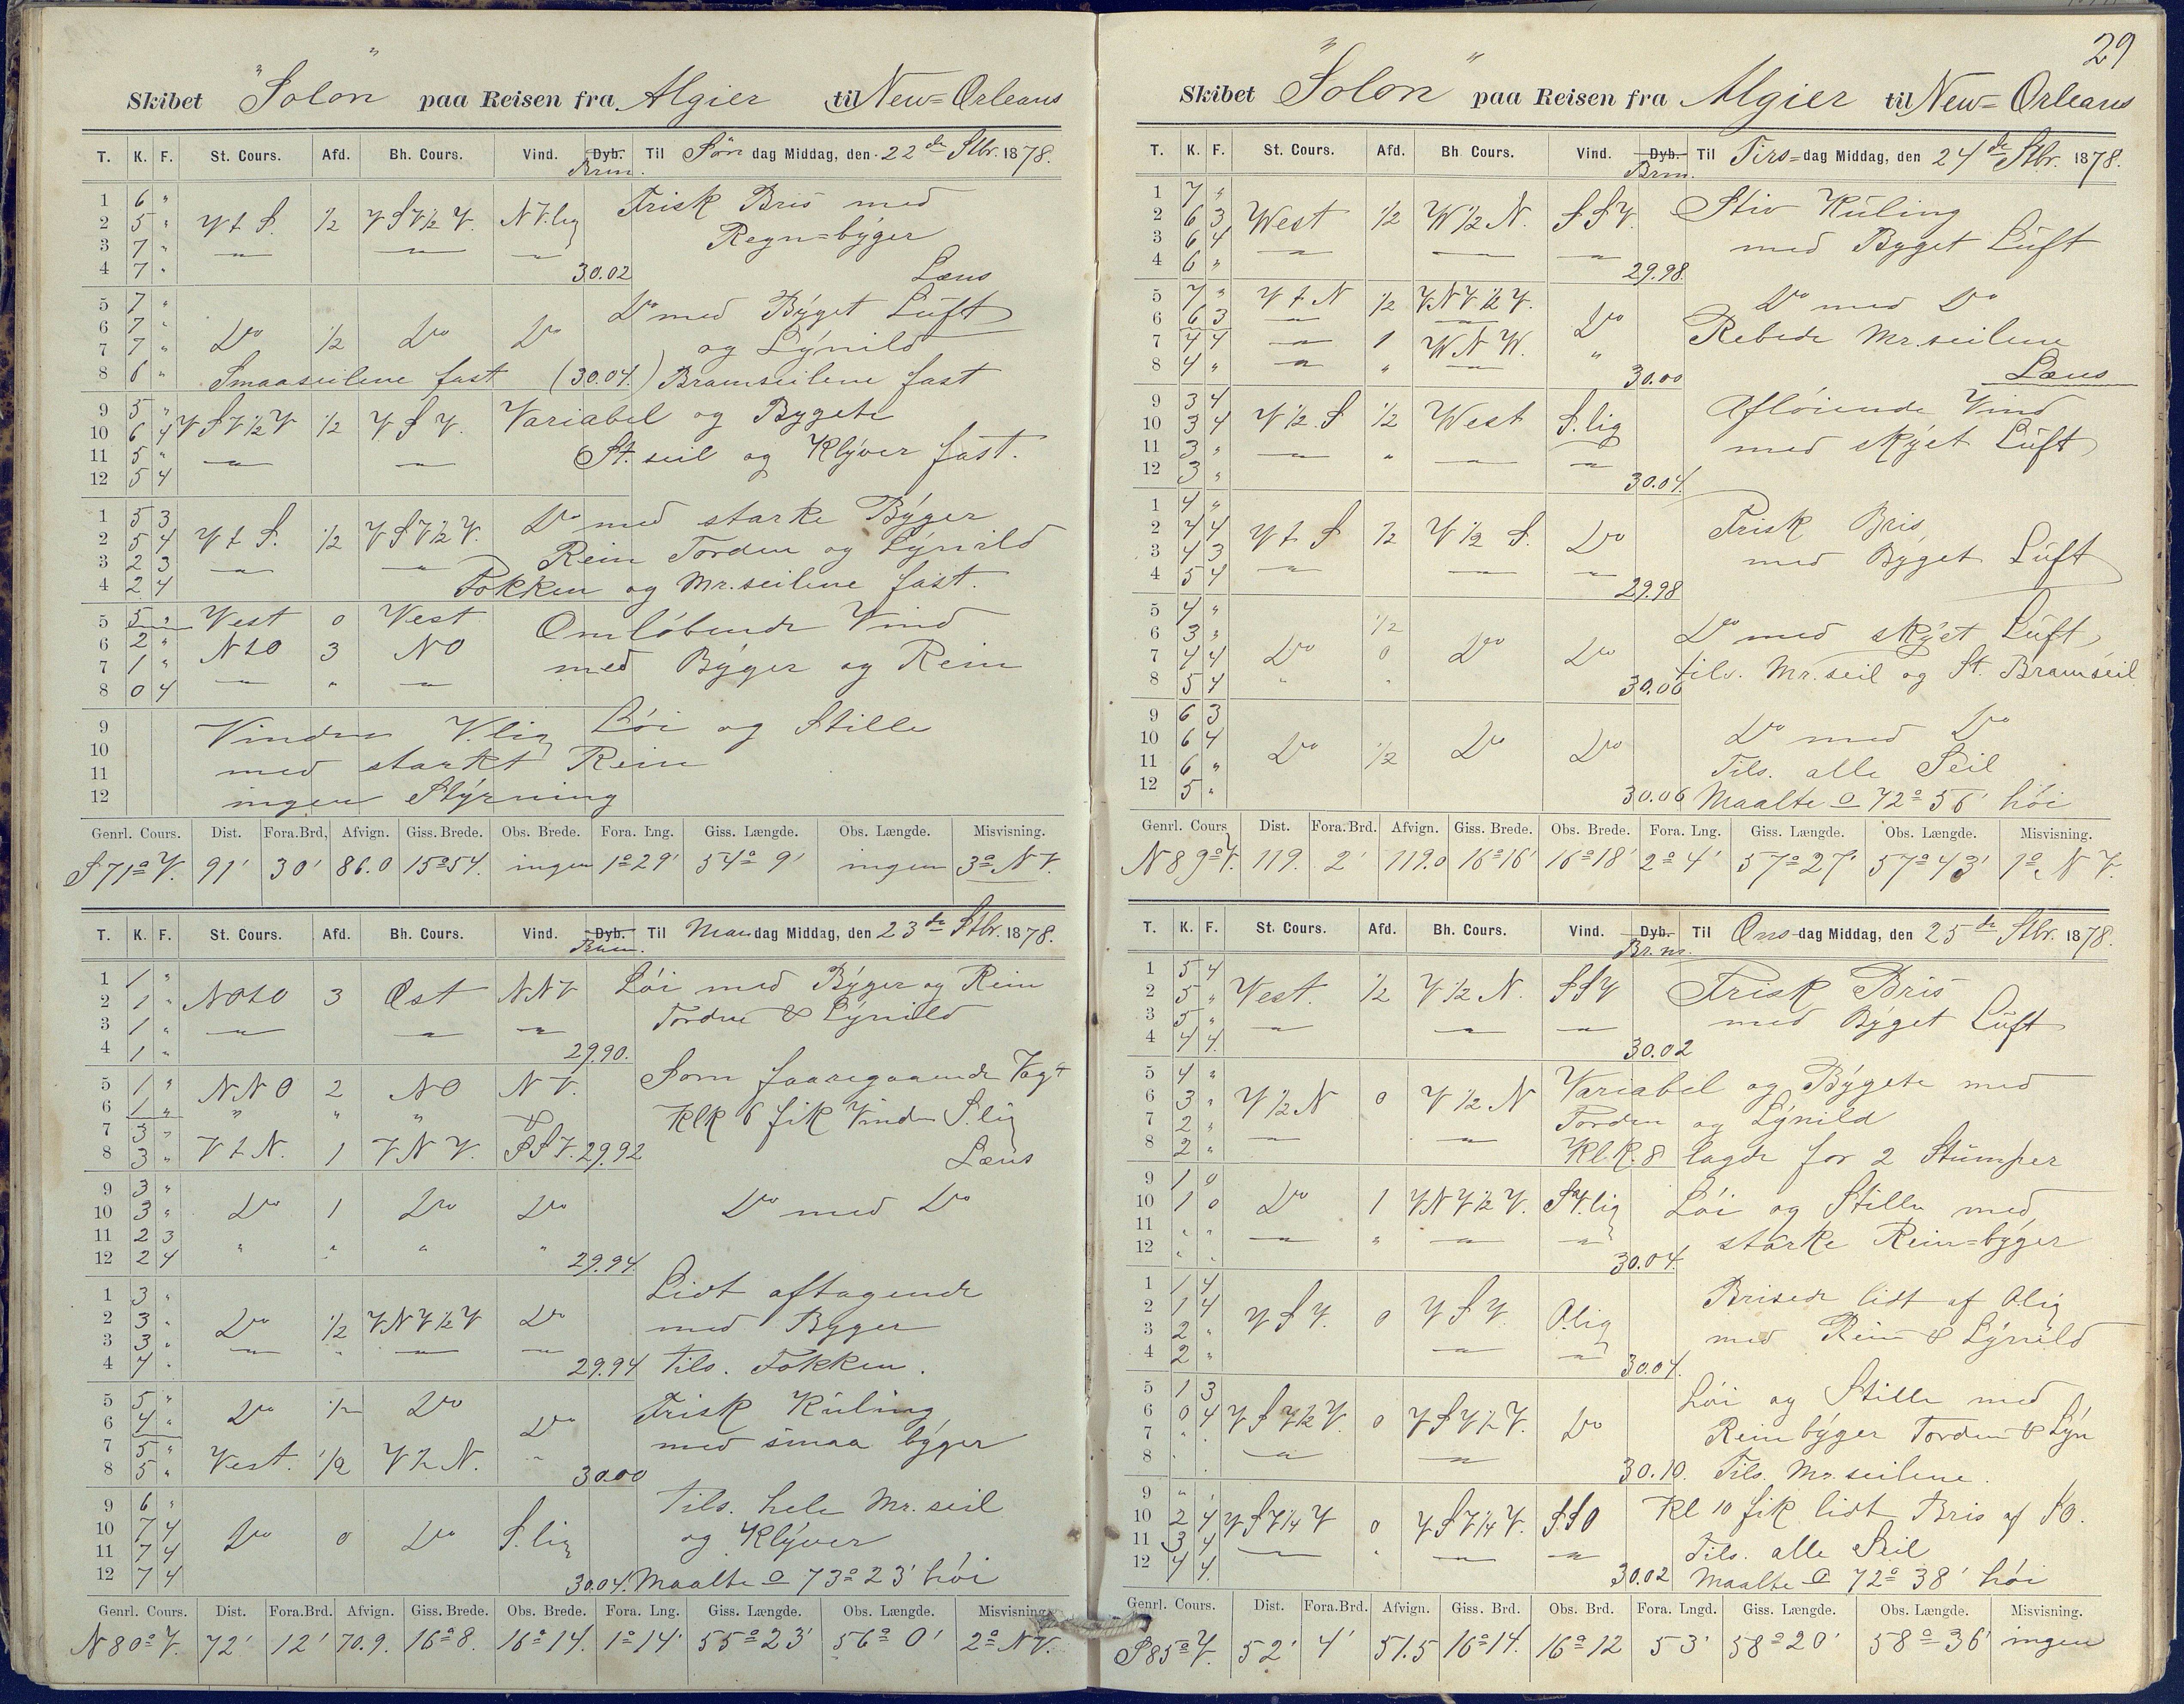 Skibet "Solon" paa Reisen fra Algier til New=Orleans
T. K. F. St. Cours. Afd. Bh. Cours. Vind. Dyb. Brm. Til Søndagmiddag, den 22de Stbr. 1878.
1 6 "
2 5 " V t S. 1/2 VSV 1/2 V. NV.lig Frisk Bris med
3 7 " Regn=býger
4 7 " 30.02 Læns
5 7 " Do med Býget Luft
6 7 " Do 1/2 Do Do
7 7 " og Lýnild
8 6 " Smaaseilene fast (30.04.) Bramseilene fast
9 5 "
10 6 4 VSV 1/2 V 1/2 VSV. Variabel og Bygete
11 5 " St. seil og Klýver fast.
12 5 4
1 5 3
2 5 4 V t S. 1/2 VSV 1/2 V. Do med starke Býger
3 2 3 Rein Torden og Lýnild
4 2 4 Fokken og Mr.seilene fast.
5 5 " Vest 0 Vest Omløbende Vind
6 2 " NtO 3 NO
7 1 " med Býger og Rein
8 0 4
9 Vinden V.lig Løi og Stille
10 med starkt Rein
11
12 ingen Stýrning
Genrl. Cours. Dist. Fora.Brd, Afvign. Giss. Brede. Obs. Brede. Fora. Lng. Giss. Længde. Obs. Længde. Misvisning.
S 71° V. 91' 30' 86.0 15°54. ingen 1°29' 54° 9' ingen 3° NV.
T. K. F. St. Cours. Afd. Bh. Cours. Vind. Dyb. Brm. Til Mandag Middag, den 23de Stbr. 1878.
1 1 "
2 1 " NOtO 3 Øst NNV Løi med Býger og Rein
3 1 " Torden & Lýnild
4 1 " 29.90.
5 1 " NNO 2 NO NV. Som foaregaaende Vagt
6 1 " " " "
7 3 " Klk 6 fik Vinden S.lig
8 3 " V t N. 1 VNV. SSV. 29.92 Læns
9 3 "
10 3 " Do 1 Do Do Do med Do
11 2 3
12 2 4 29.94
1 3 " Lidt aftagende
2 3 " Do 1/2 VNV 1/2 V Do
3 3 " med Byger
4 4 " 29.94 Tils. Fokken.
5 5 " Do 1/2 Do Do Frisk Kuling
6 4 "
7 5 " med smaa býger
8 5 " Vest. 1/2 V 1/2 N. 30.00
9 6 " Tils. hele Mr. seil
10 7 4 Do 0 Do S.lig
11 7 4 og Klýver
12 7 4 30.04. Maalte O 73° 23' høi
Genrl. Cours. Dist. Fora.Brd. Afvign. Giss. Brede. Obs. Brede. Fora. Lng. Giss. Længde. Obs. Længde. Misvisning.
N 80° V. 72' 12' 70.9. 16°8. 16° 14. 1° 14' 55° 23' 56° 0' 2° NV.
29
Skibet "Solon" paa Reisen fra Algier til New=Orleans
T. K. F. St. Cours. Afd. Bh. Cours. Vind. Dyb. Brm. Til Tirs=dag Middag, den 24de Stbr. 1878.
1 7 "
2 6 3 West 1/2 W 1/2 N. SSV. Stiv Kuling
3 6 4 med Byget Luft
4 6 " 29.98.
5 7 " V t N 1/2 VNV 1/2 V. Do med Do
6 6 3 Do
7 4 4 1 WNW. Rebede Mr.seilene
8 4 " " " 30.00 Læns
9 3 4 Afløiende Vind
10 3 4 V 1/2 S 1/2 West S.lig
11 3 " " med skýet Luft
12 3 " 30.04.
1 4 "
2 4 4 V t S 1/2 V 1/2 S. Do Frisk Bris
3 4 3 med Byget Luft
4 5 4 29.98
5 4 " 1/2
6 3 " Do med skýet Luft
7 4 4 Do 0 Do Do
8 5 4 " " 30.06 tils. Mr.seil og St. Bramseil
9 6 3
10 6 4 Do 1/2 Do Do Do med Do
11 6 " Tils. alle Seil
12 5 " 30.06 Maalte O 72° 56' høi
Genrl. Cours Dist. Fora.Brd. Afvign. Giss. Brede. Obs. Brede. Fora. Lng. Giss. Længde. Obs. Længde. Misvisning.
N 89° V. 119. 2' 119.0 16°16' 16°18' 2° 4' 57° 27' 57° 43' 1° NV.
T. K. F. St. Cours. Afd. Bh. Cours. Vind. Dyb. Brm. Til Ons-dag Middag, den 25de Stbr. 1878.
1 5 4
2 5 " Vest. 1/2 V 1/2 N. SSV Frisk Bris
3 5 " med Býget Luft
4 4 4 30.02
5 4 " Variabel og Býgete med
6 3 " V 1/2 N 0 V 1/2 N
7 2 " Torden og Lýnild
8 2 " Klk. 8 lagde for 2 Stumper
9 1 0
10 1 0 Do 1 VNV 1/2 V. SV.lig Løi og Stille med
11 " " " starke Rein=býger
12 " " 30.04.
1 1 4 Brisede lidt af O.lig
2 1 4 VSV. 0 VSV. O.lig
3 2 " med Rein & Lýnild
4 2 " 30.04.
5 1 3 Løi og Stille med
6 0 4 VSV 1/2 V. 0 VSV 1/2 V. Do
7 " Reinbýger Torden & Lýn
8 30.10. Tils. Mr.seilene.
9 "
10 2 4 VSV 1/4 V 0 VSV 1/4 V. SSO Kl 10 fik lidt Bris af SO.
11 3 4 Tils. alle Seil
12 4 4. 30.02 Maalte O 72° 38' høi
Genrl. Cours. Dist. Fora.Brd. Afvign. Giss. Brd. Obs. Brd. Fora. Lngd. Giss. Længde. Obs. Længde. Misvisning.
S 85° V. 52' 4' 51.5 16°14. 16°12 53' 58° 20' 58° 36' ingen